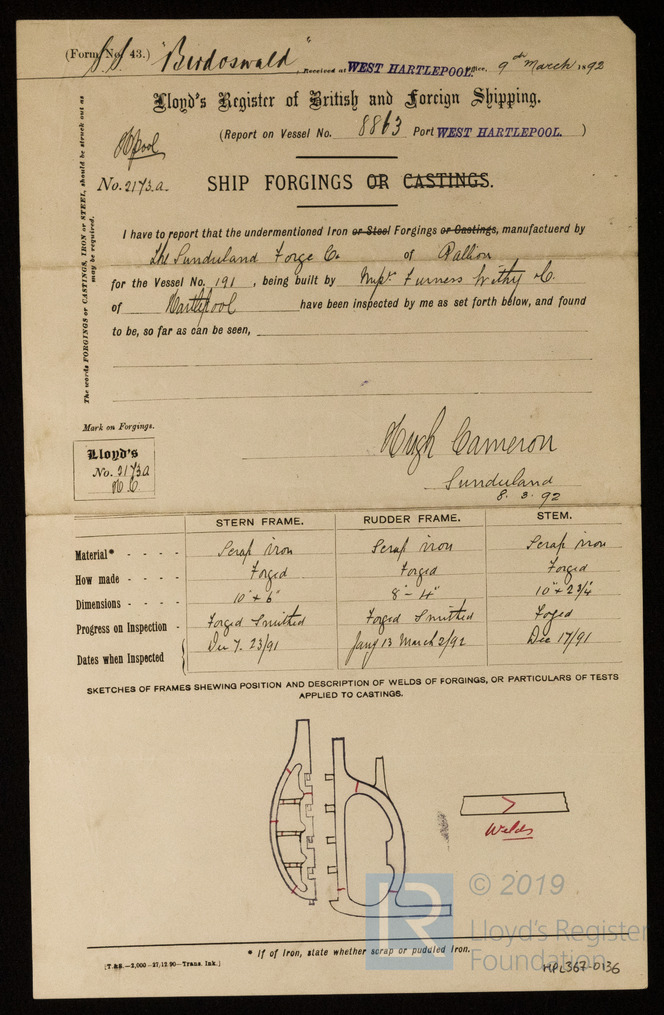 (Form No. 43.) S.S. "Birdoswald" Received at WEST HARTLEPOOL. Office, 9th March 1892
Lloyd's Register of British and Foreign Shipping.
(Report on Vessel No. 8863 Port WEST HARTLEPOOL. )
Hpool
No. 2173.a.
SHIP FORGINGS OR CASTINGS.
The words FORGINGS or CASTINGS, IRON or STEEL, should be struck out as
may be required.
I have to report that the undermentioned Iron or Steel Forgings or Castings, manufactuerd by
The Sunderland Forge Co. of Pallion
for the Vessel No. 191 , being built by Mess Furness Withy & Co.
of Hartlepool have been inspected by me as set forth below, and found
to be, so far as can be seen,
Hugh Cameron
Sunderland
8. 3. 92
Mark on Forgings.
Lloyd's
No. 2173a
H.C.
STERN FRAME. RUDDER FRAME. STEM.
Material* - - - - Scrap iron Scrap iron Scrap iron
How made - - - - Forged Forged Forged
Dimensions - - - - 10" + 6" 8" - 4" 10" + 2 3/4"
Progress on Inspection - Forged Smithed Forged Smithed Forged
Dates when Inspected Dec 7. 23/91 Jany 13 March 2/92 Dec 17/91
SKETCHES OF FRAMES SHEWING POSITION AND DESCRIPTION OF WELDS OF FORGINGS, OR PARTICULARS OF TESTS
APPLIED TO CASTINGS.
Welds
* If of Iron, state whether scrap or puddled Iron.
[T. & S.—2,000—27,12,90—Trans. Ink.]
HPL367-0136
LR
© 2019
Lloyd's Register
Foundation